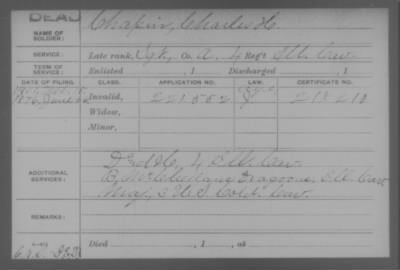 DEAD
NAME OF SOLDIER: Chapin, Charles H.
SERVICE: Late rank, Sgt, Co. A, 4 Reg't Ill. Cav.
TERM OF SERVICE: Enlisted , 1 Discharged , 1
DATE OF FILING. CLASS. APPLICATION NO. LAW. CERTIFICATE NO.
1876, June Invalid, 221.552 213.210
Widow,
Minor,
ADDITIONAL SERVICES: H, 4 Ill. Cav.
Dragoons, Ill. Cav.
Maj. 3 U.S. Cold. Cav.
REMARKS:
Died , 1 , at